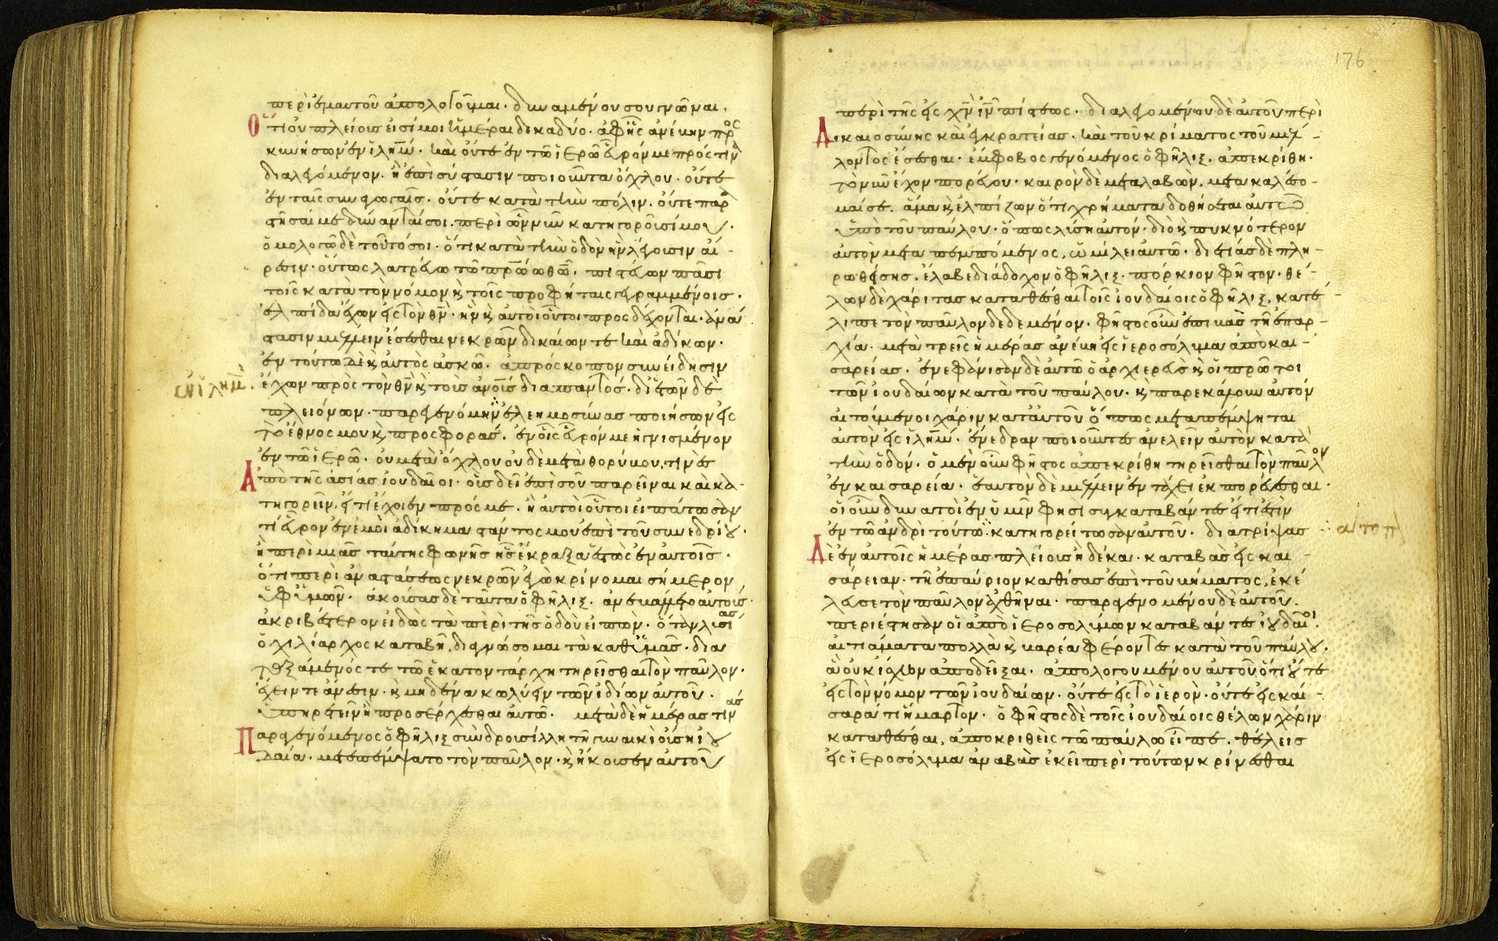 περὶ ἐμαυτοῦ ἀπολογοῦμαι· δυναμένου σου γνῶναι·
Ὅτι οὐ πλείους εἰσί μοι ἡμέραι δεκαδύο· ἀφ' ἧς ἀνέβην προσ
κυνήσων ἐν ἰλῆμ· καὶ οὔτε ἐν τῶ ἱερῶ εὗρόν με πρός τινα
διαλεγόμενον· ἢ ἐπισύστασιν ποιοῦντα ὄχλου· οὔτε
ἐν ταῖς συναγωγαῖς· οὔτε κατὰ τὴν πόλιν· οὔτε παρα
στῆσαί με δύνανταί σοι· περὶ ὧν νῦν κατηγοροῦσί μου·
ὁμολογῶ δὲ τοῦτό σοι· ὅτι κατὰ τὴν ὁδὸν ἣν λέγουσιν αἵ-
ρεσιν· οὕτως λατρεύω τῶ πρώω θῶ· πιστεύων πᾶσι
τοῖς κατὰ τὸν νόμον κ τοῖς προφήταις γεγραμμένοις·
ἐλπίδα ἔχων εἰς τὸν θν· ἣν κ αὐτοὶ οὗτοι προσδέχονται· ἀνά
στασιν μέλλειν ἔσεσθαι νεκρῶν δικαίων τε καὶ ἀδίκων·
ἐν τούτω δὲ κ αὐτὸς ἀσκῶ· ἀπρόσκοπον συνείδησιν
ἔχων πρὸς τὸν θν κ τοὺς ἀνους διαπαντός· δι' ἐτῶν δὲ
πλειόνων· παρεγενόμην ἐλεημοσύνας ποιήσων εἰς
τὸ ἔθνος μου κ προσφοράς· ἐν οἷς εὗρόν με ἡγνισμένον
ἐν τῶ ἱερῶ· οὐ μετὰ ὄχλου οὐδὲ μετὰ θορύβου, τινὲς
Ἀπὸ τῆς ἀσίας ἰουδαῖοι· οὓς δεῖ ἐπὶ σοῦ παρεῖναι καὶ κα-
τηγορεῖν, εἴ τι ἔχοιεν πρός με· ἢ αὐτοὶ οὗτοι εἰπάτωσαν
τί εὗρον ἐν ἐμοὶ ἀδίκημα στάντος μου ἐπὶ τοῦ συνεδρίου
ἢ περὶ μιᾶς ταύτης φωνῆς ἧς ἔκραξα ἑστὼς ἐν αὐτοῖς·
ὅτι περὶ ἀναστάσεως νεκρῶν ἐγὼ κρίνομαι σήμερον
ὑφ' ὑμῶν· ἀκούσας δὲ ταῦτα ὁ φῆλιξ· ἀνεβάλετο αὐτούς·
ἀκριβέστερον εἰδὼς τὰ περὶ τῆς ὁδοῦ εἰπών· ὅταν λυσίας
ὁ χιλίαρχος καταβῆ, διαγνώσομαι τὰ καθ' ὑμᾶς· δια
ταξάμενός τε τῶ ἑκατοντάρχη τηρεῖσθαι τὸν παῦλον·
ἔχειν τε ἄνεσιν· κ μηδένα κωλύειν τῶν ἰδίων αὐτοῦ·
ὑπηρετεῖν ἢ προσέρχεσθαι αὐτῶ· μετὰ δὲ ἡμέρας τινάς
Παραγενόμενος ὁ φῆλιξ σὺν δρουσίλλη τῆ γυναικὶ οὔση ἰου
δαία· μετεπέμψατο τὸν παῦλον· κ ἤκουσεν αὐτοῦ
ἐν ἰλημ
176
περὶ τῆς εἰς χν ιν πίστεως· διαλεγομένου δὲ αὐτοῦ περὶ
Δικαιοσύνης καὶ ἐγκρατείας· καὶ τοῦ κρίματος τοῦ μέλ-
λοντος ἔσεσθαι· ἔμφοβος γενόμενος ὁ φῆλιξ· ἀπεκρίθη·
τὸ νῦν ἔχον πορεύου· καιρὸν δὲ μεταλαβὼν, μετακαλέσο-
μαί σε· ἅμα κ ἐλπίζων ὅτι χρήματα δοθήσεται αὐτῶ
ὑπὸ τοῦ παύλου· ὅπως λύση αὐτόν· διὸ κ πυκνότερον
αὐτὸν μεταπεμπόμενος, ὡμίλει αὐτῶ· διετίας δὲ πλη-
ρωθείσης· ἔλαβε διάδοχον ὁ φῆλιξ· πόρκιον φῆστον· θέ-
λων δὲ χάριτας καταθέσθαι τοῖς ἰουδαίοις ὁ φῆλιξ, κατέ-
λιπε τὸν παῦλον δεδεμένον· φῆστος οὖν ἐπιβὰς τῆ ἐπαρ-
χία· μετὰ τρεῖς ἡμέρας ἀνέβη εἰς ἱεροσόλυμα ἀπὸ και-
σαρείας· ἐνεφάνισαν δὲ αὐτῶ ὁ ἀρχιερεὺς κ οἱ πρῶτοι
τῶν ἰουδαίων κατὰ τοῦ παύλου· κ παρεκάλουν αὐτὸν
αἰτούμενοι χάριν κατ' αὐτοῦ ὅπως μεταπέμψηται
αὐτὸν εἰς ἰλῆμ· ἐνέδραν ποιοῦντες ἀνελεῖν αὐτὸν κατὰ
τὴν ὁδόν· ὁ μὲν οὖν φῆστος ἀπεκρίθη τηρεῖσθαι τὸν παῦλον
ἐν καισαρεία· ἑαυτὸν δὲ μέλλειν ἐν τάχει ἐκπορεύεσθαι·
οἱ οὖν δυνατοὶ ἐν ὑμῖν φησὶ συγκαταβάντες εἴ τι ἐστὶν
ἐν τῶ ἀνδρὶ τούτω· κατηγορείτωσαν αὐτοῦ· διατρίψας
Δὲ ἐν αὐτοῖς ἡμέρας πλείους ἢ δέκα· καταβὰς εἰς και-
σάρειαν· τῆ ἐπαύριον καθίσας ἐπὶ τοῦ βήματος, ἐκέ
λευσε τὸν παῦλον ἀχθῆναι· παραγενομένου δὲ αὐτοῦ·
περιέστησαν οἱ ἀπὸ ἱεροσολύμων καταβάντες ἰουδαῖοι
αἰτιάματα πολλὰ κ βαρέα φέροντες κατὰ τοῦ παύλου·
ἃ οὐκ ἴσχυον ἀποδεῖξαι· ἀπολογουμένου αὐτοῦ ὅτι οὔτε
εἰς τὸν νόμον τῶν ἰουδαίων· οὔτε εἰς τὸ ἱερὸν· οὔτε εἰς καί-
σαρά τι ἥμαρτον· ὁ φῆστος δὲ τοῖς ἰουδαίοις θέλων χάριν
καταθέσθαι, ἀποκριθεὶς τῶ παύλω εἶπε· θέλεις
εἰς ἱεροσόλυμα ἀναβὰς ἐκεῖ περὶ τούτων κρίνεσθαι